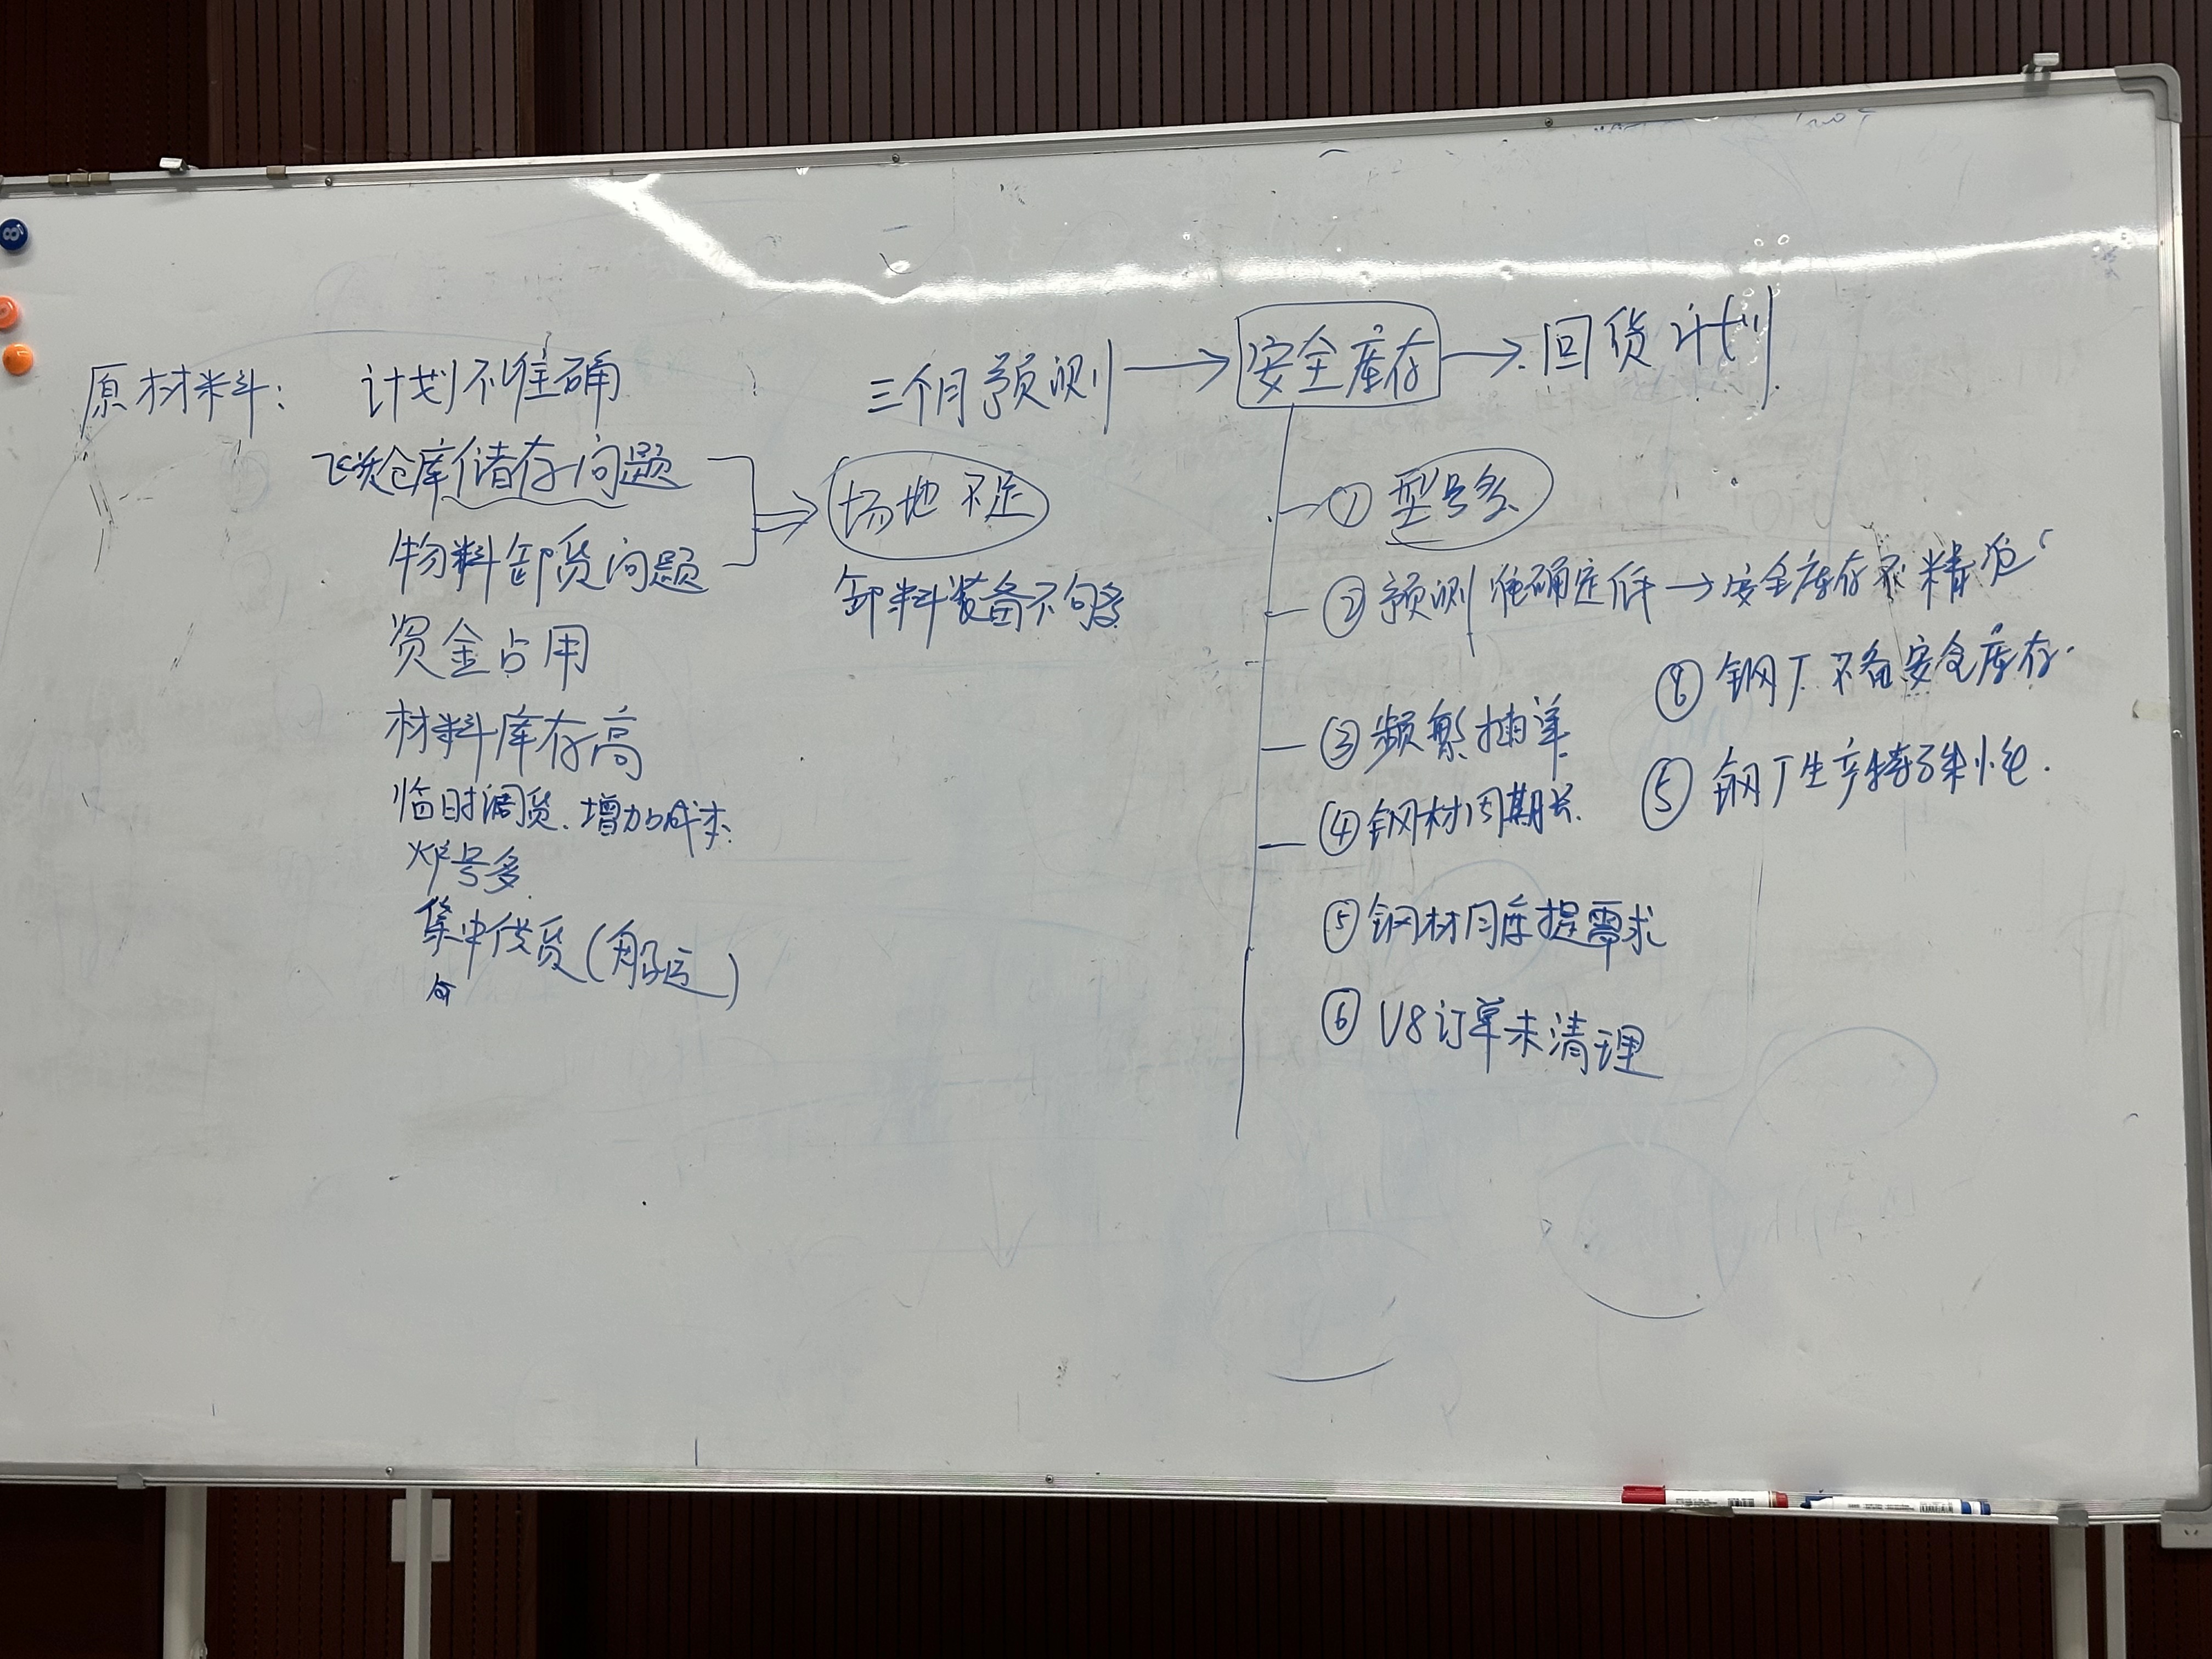 原材料：
计划不准确
仓库储存问题
物料卸货问题
资金占用
材料库存高
临时调货、增加成本
炉号多
集中供货（船运）
三个月预测 → 安全库存 → 回货计划
场地不足
卸料装备不够
① 型号多
② 预测准确定低 → 安全库存不精准
③ 频繁插单
④ 钢材周期长
⑤ 钢材月度提需求
⑥ V8订单未清理
⑥ 钢厂不备安全库存
⑤ 钢厂生产特殊性